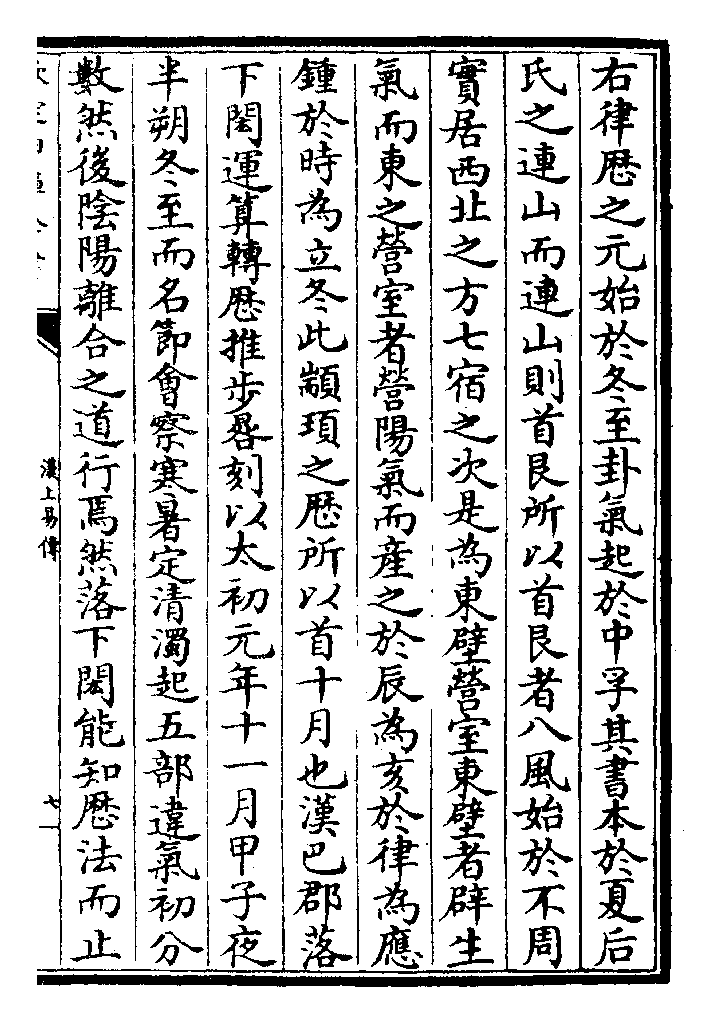 右律厯之元始於冬至卦氣起於中孚其書本於夏后
氏之連山而連山則首艮所以首艮者八風始於不周
實居西北之方七宿之次是為東壁營室東壁者辟生
氣而東之營室者營陽氣而產之於辰為亥於律為應
鍾於時為立冬此顓頊之厯所以首十月也漢巴郡落
下閎運算轉厯推步晷刻以太初元年十一月甲子夜
半朔冬至而名節會察寒暑定清濁起五部違氣初分
數然後陰陽離合之道行焉然落下閎能知厯法而止
漢上易傳
七